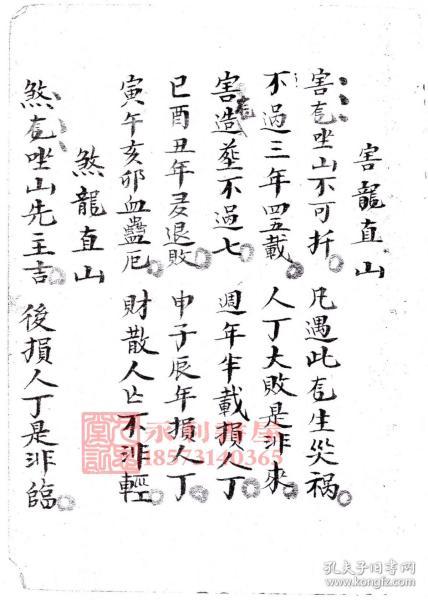 害龍直山
害龍坐山不可扦 凡遇此龍生災禍
不過三年四五載 人丁大敗是非來
害龍造葬不過七 週年半載損人丁
巳酉丑年多退敗 申子辰年損人丁
寅午亥卯血蠱厄 財散人亡不非輕
煞龍直山
煞龍坐山先主吉 後損人丁是非臨
永利書屋
18573140365
孔夫子旧书网